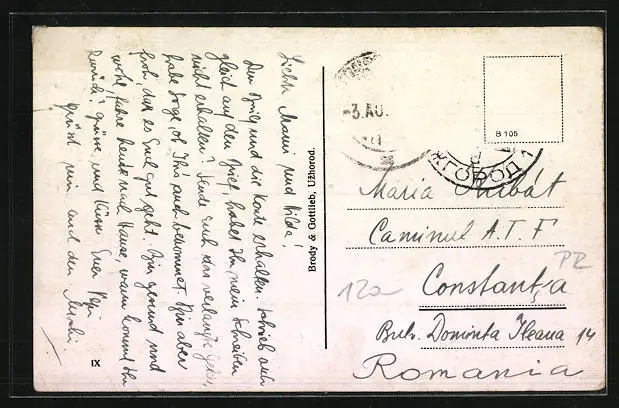 Liebe Mami und Hilda!
Den Brief und die Karte erhalten. Schrieb auch
gleich auf den Brief, habet Ihr mein Schreiben
nicht erhalten? Sende Euch das verlangte Geld,
habe Sorge, ob Ihr's auch bekommet. Bin aber
froh, daß es Euch gut geht. Bin gesund und
wohl, fahre heute nach Hause, wann kommt Ihr
zurück? Grüsse und Küsse Euer
grüsst mir auch den
IX
Brody & Gottlieb, Užhorod.
-3.AU.
ЖГОРОД 1
B 105
Maria
Caminul A.T.F
Constanța
PR
12a
Bulv. Domnita Ileana 14
Romania